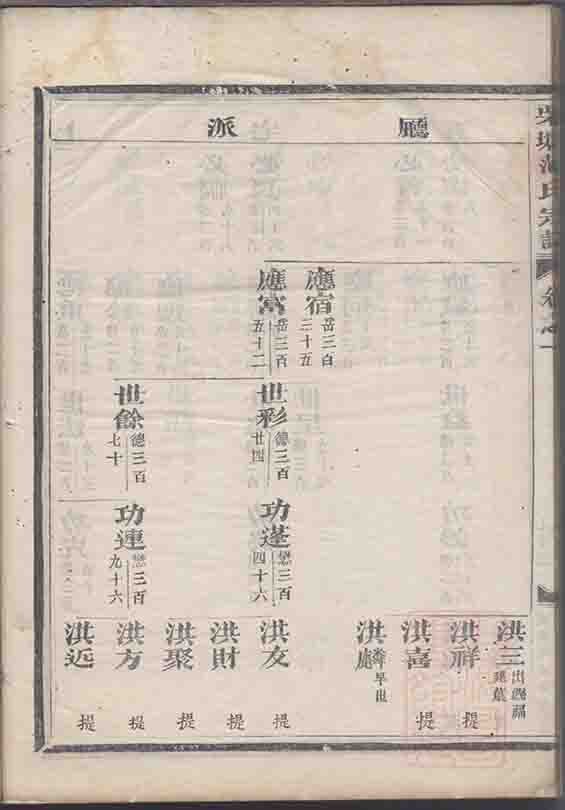 氏宗譜 卷之一
廳派
應宿 岳三百三十五
應富 岳三百五十二
世彩 德三百廿四
世餘 德三百七十
功蓬 懋三百四十六
功連 懋三百九十六
洪三 出
洪祥 提
洪喜 提
洪 早世
洪友 提
洪財 提
洪聚 提
洪方 提
洪近 提